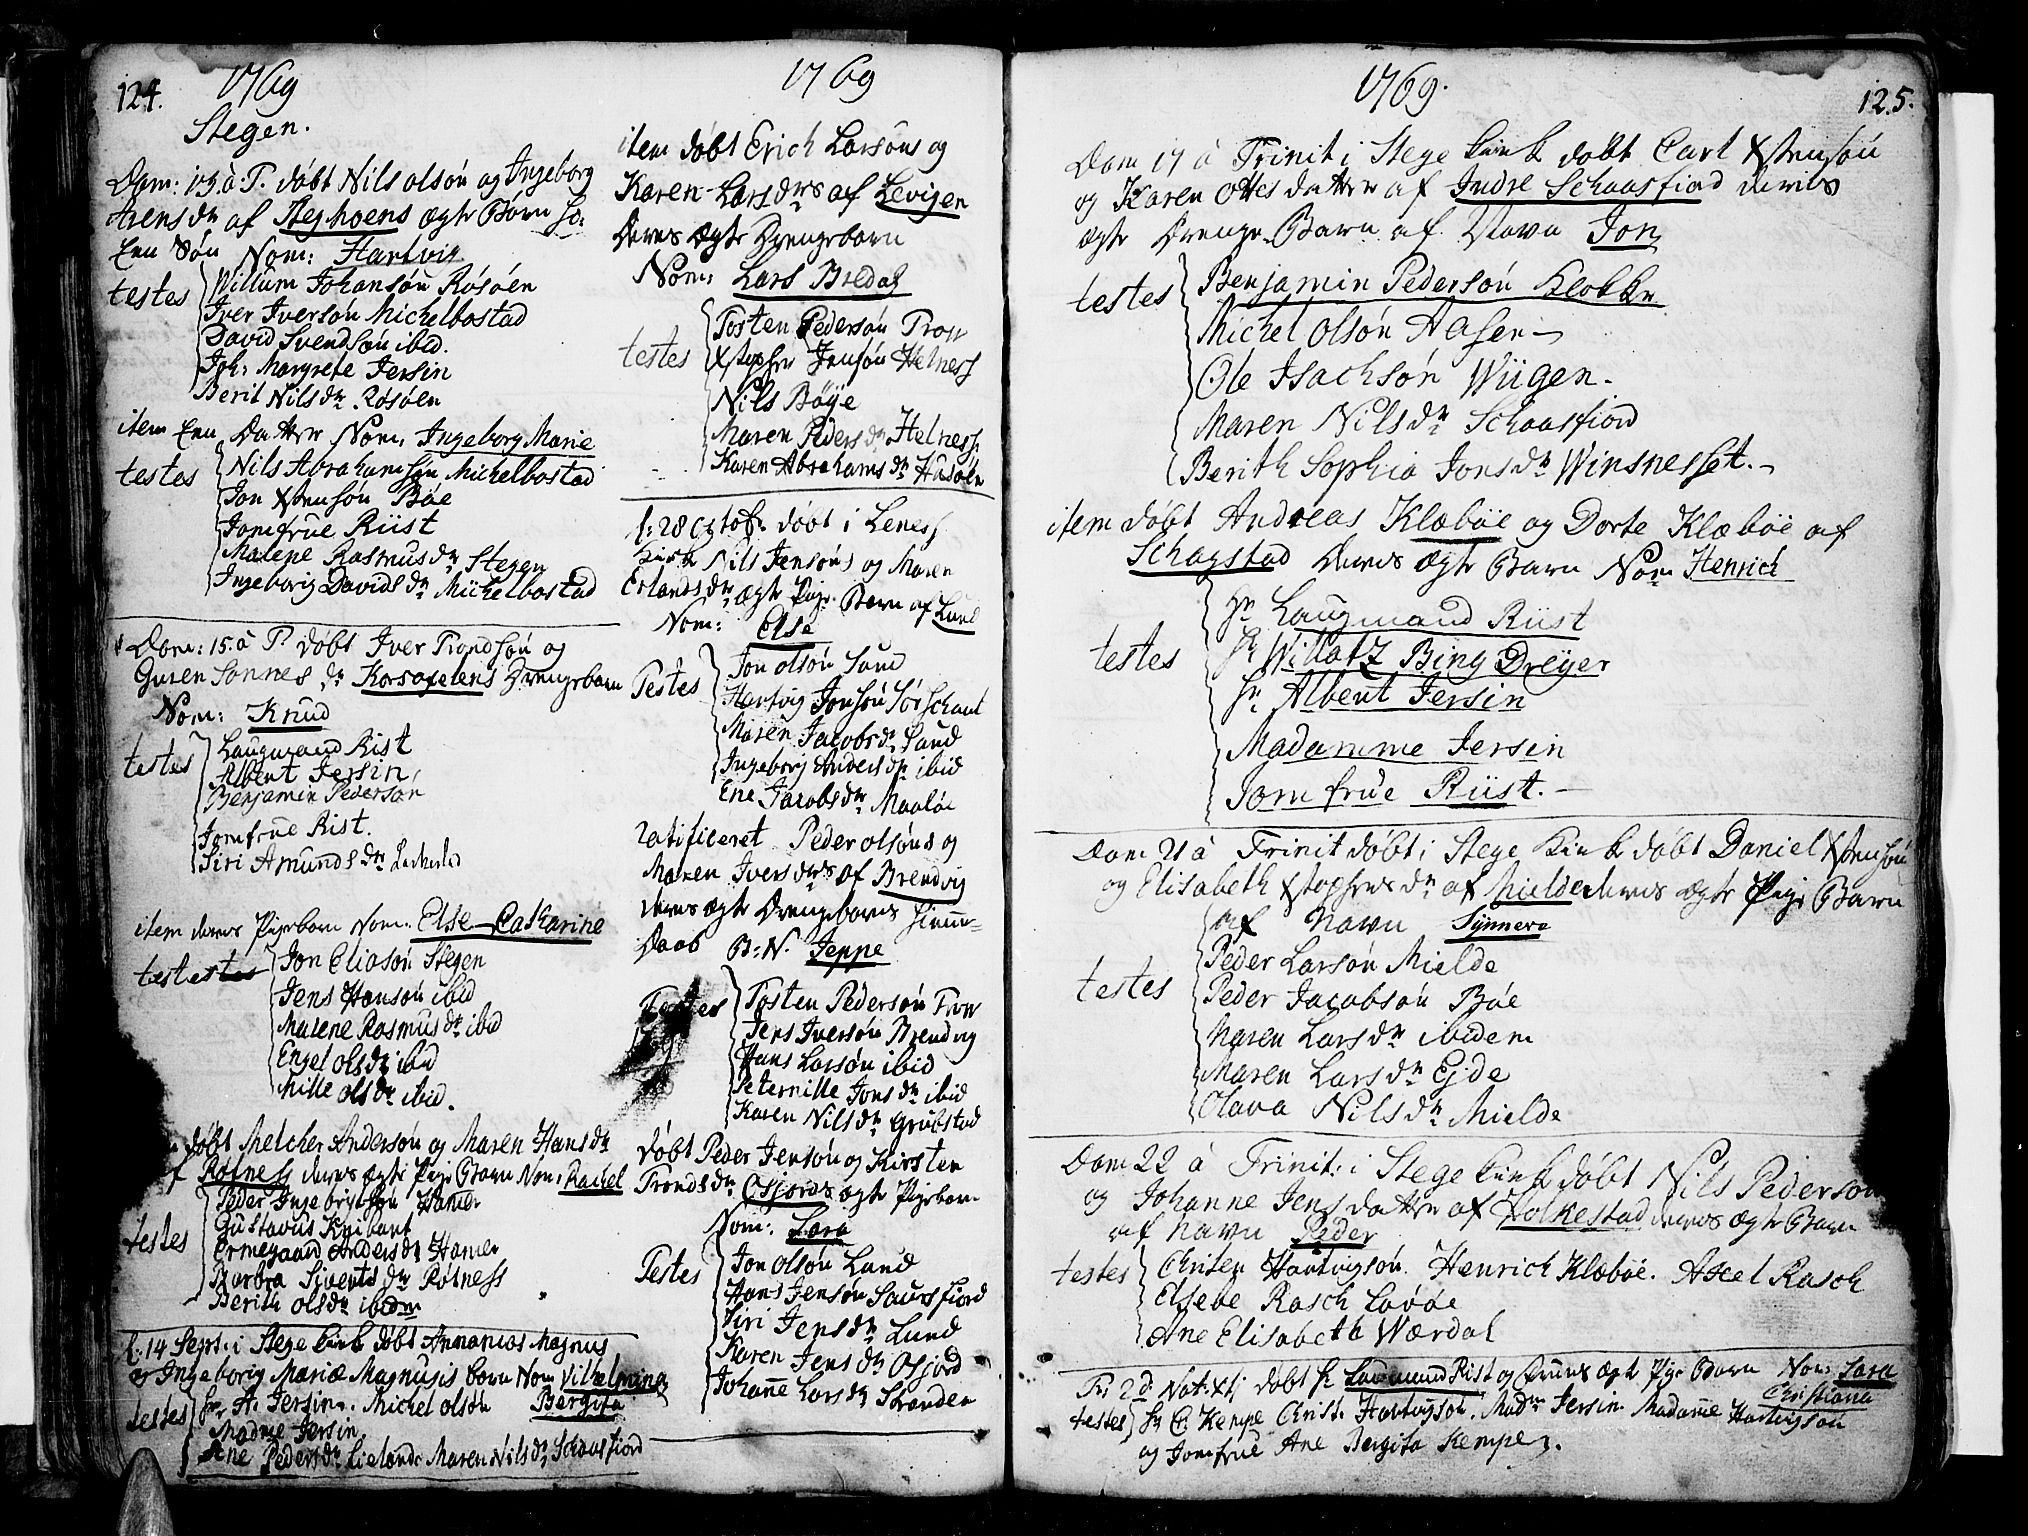 124.
1769
Stegen.
Dom: 13. à T. døbt Nils olsøn og Ingeborg
Arensdr af Steghoens ægte Børn
Een Søn Nom: Hartvig
testes Willum Johansøn Røsøen
Iver Iversøn Michelbostad
David Svendsøn ibid.
Joh: Margrete Jersin
Berit Nilsdr Røsøen
item Een Datter Nom. Ingeborg Marie
testes Nils Abrahamsøn Michelbostad
Jon Xstensøn Bøe
Jomfrue Riist
Malene Rasmusdr Stegen
Ingeborg Davidsdr Michelbostad
Dom: 15. à T. døbt Iver Trondsøn og
Guren dr Drengebarn
Nom: Knud
testes Laugmand Rist
Albert Jersin
Benjamin Pedersøn
Jomfrue Rist.
Siri Amundsdr
item deres Pigebarn Nom. Else Catharine
testes Jon Eliasøn Stegen
Jens Hansøn ibid
Malene Rasmusdr ibid
Engel olsdr ibid
Mille olsdr ibid.
døbt Melcher Andersøn og Maren Hansdr
af Røtness deres ægte Pige Barn Nom: Rachel
testes Peder Hamer
Gustavus
Ermegaard Andersdr Hamer
Barbra Sivertsdr Røtness
Berith olsdr ibidm
d. 14 Sept. i Stege Kirke døbt Annanias Magnus
og Ingeborg Mariæ Magnusis born Nom Vilhelmina
Bergita
testes Hr A. Jersin. Michel olsøn
Madme Jersin
Ane Pedersdr Maren Nilsdr Schaasfiord
1769
item døbt Erich Larsøns og
Karen Larsdrs af Levigen
Deres Ægte Drengebarn
Nom: Lars Bredal
testes Tosten Pedersøn
Xstopher Jensøn Helness
Nils Böye
Maren Pedersdr Helness
Karen Abrahamsdr
d: 28 Octob. døbt i Leness
Kirke Nils Jensøns og Maren
Erlandsdrs ægte Pige Barn af Lund
Nom: Else
Testes Jon olsøn Lund
Hartvig Jonsøn
Maren Jacobsdr Lund
Ingeborg Andersdr ibid
Ene Jacobsdr Maaløe
ratificeret Peder olsøns og
Maren Iversdrs af Brendvig
deres ægte Drengebarns hiemme
Daab B: N. Jeppe
Testes Tosten Pedersøn
Jens Iversøn Brendvig
Hans Larsøn ibid
Peternille Jonsdr ibid
Karen Nilsdr Grübstad
Døbt Peder Jensøn og Kirsten
Trondsdr Osjords ægte Pigebarn
Nom: Sara
Testes Jon olsøn Lund
Hans Jensøn
Siri Jensdr Lund
Karen Jensdr Osjord
Johanne Larsdr
1769.
125.
Dom 17 à Trinit i Stege Kirk døbt Carl Xstensøn
og Karen Ottesdatter af Indre Schaasfiord deres
ægte Drenge Barn af Navn Jon
testes Benjamin Pedersøn Klokker
Michel olsøn Aasen
Ole Isachsøn Wiigen
Maren Nilsdr Schaasfiord
Berith Sophia Jonsdr Winsnesset.
item døbt Andreas Klæbøe og Dorte Klæbøe af
Schagstad Deres Ægte Barn Nom Henrich
testes Hr Laugmand Riist
Hr Willatz Bing Dreyer
Hr Albert Jersin
Madamme Jersin
Jomfrue Riist.
Dom 21 à Trinit døbt i Stege Kirk døbt Daniel Xstensøn
og Elisabeth Xstophersdr af Mielde deres ægte Pige Barn
af Navn Synnera
testes Peder Larsøn Mielde
Peder Jacobsøn Bøe
Maren Larsdr ibidem
Maren Larsdr Ejde
Olava Nilsdr Mielde
Dom 22 à Trinit: i Stege Kirk døbt Nils Pedersøn
og Johanne Jensdatter af Holkestad deres ægte Barn
af Navn Peder
testes Christen Hartvigsøn. Henrich Klæbøe. Axel Rasch
Elsebe Rasch Løvøe
Ane Elisabeth Wærdal
Fr: 2d Nat. Xtj døbt Hr Laugmand Rist og Frues Ægte Pige Barn Nom: Sara
Christiana
testes Hr C. Kempe Christ: Hartvigsøn. Madm Jersin Madame Hartvigsøn
og Jomfrue Ane Bergita Kempe.